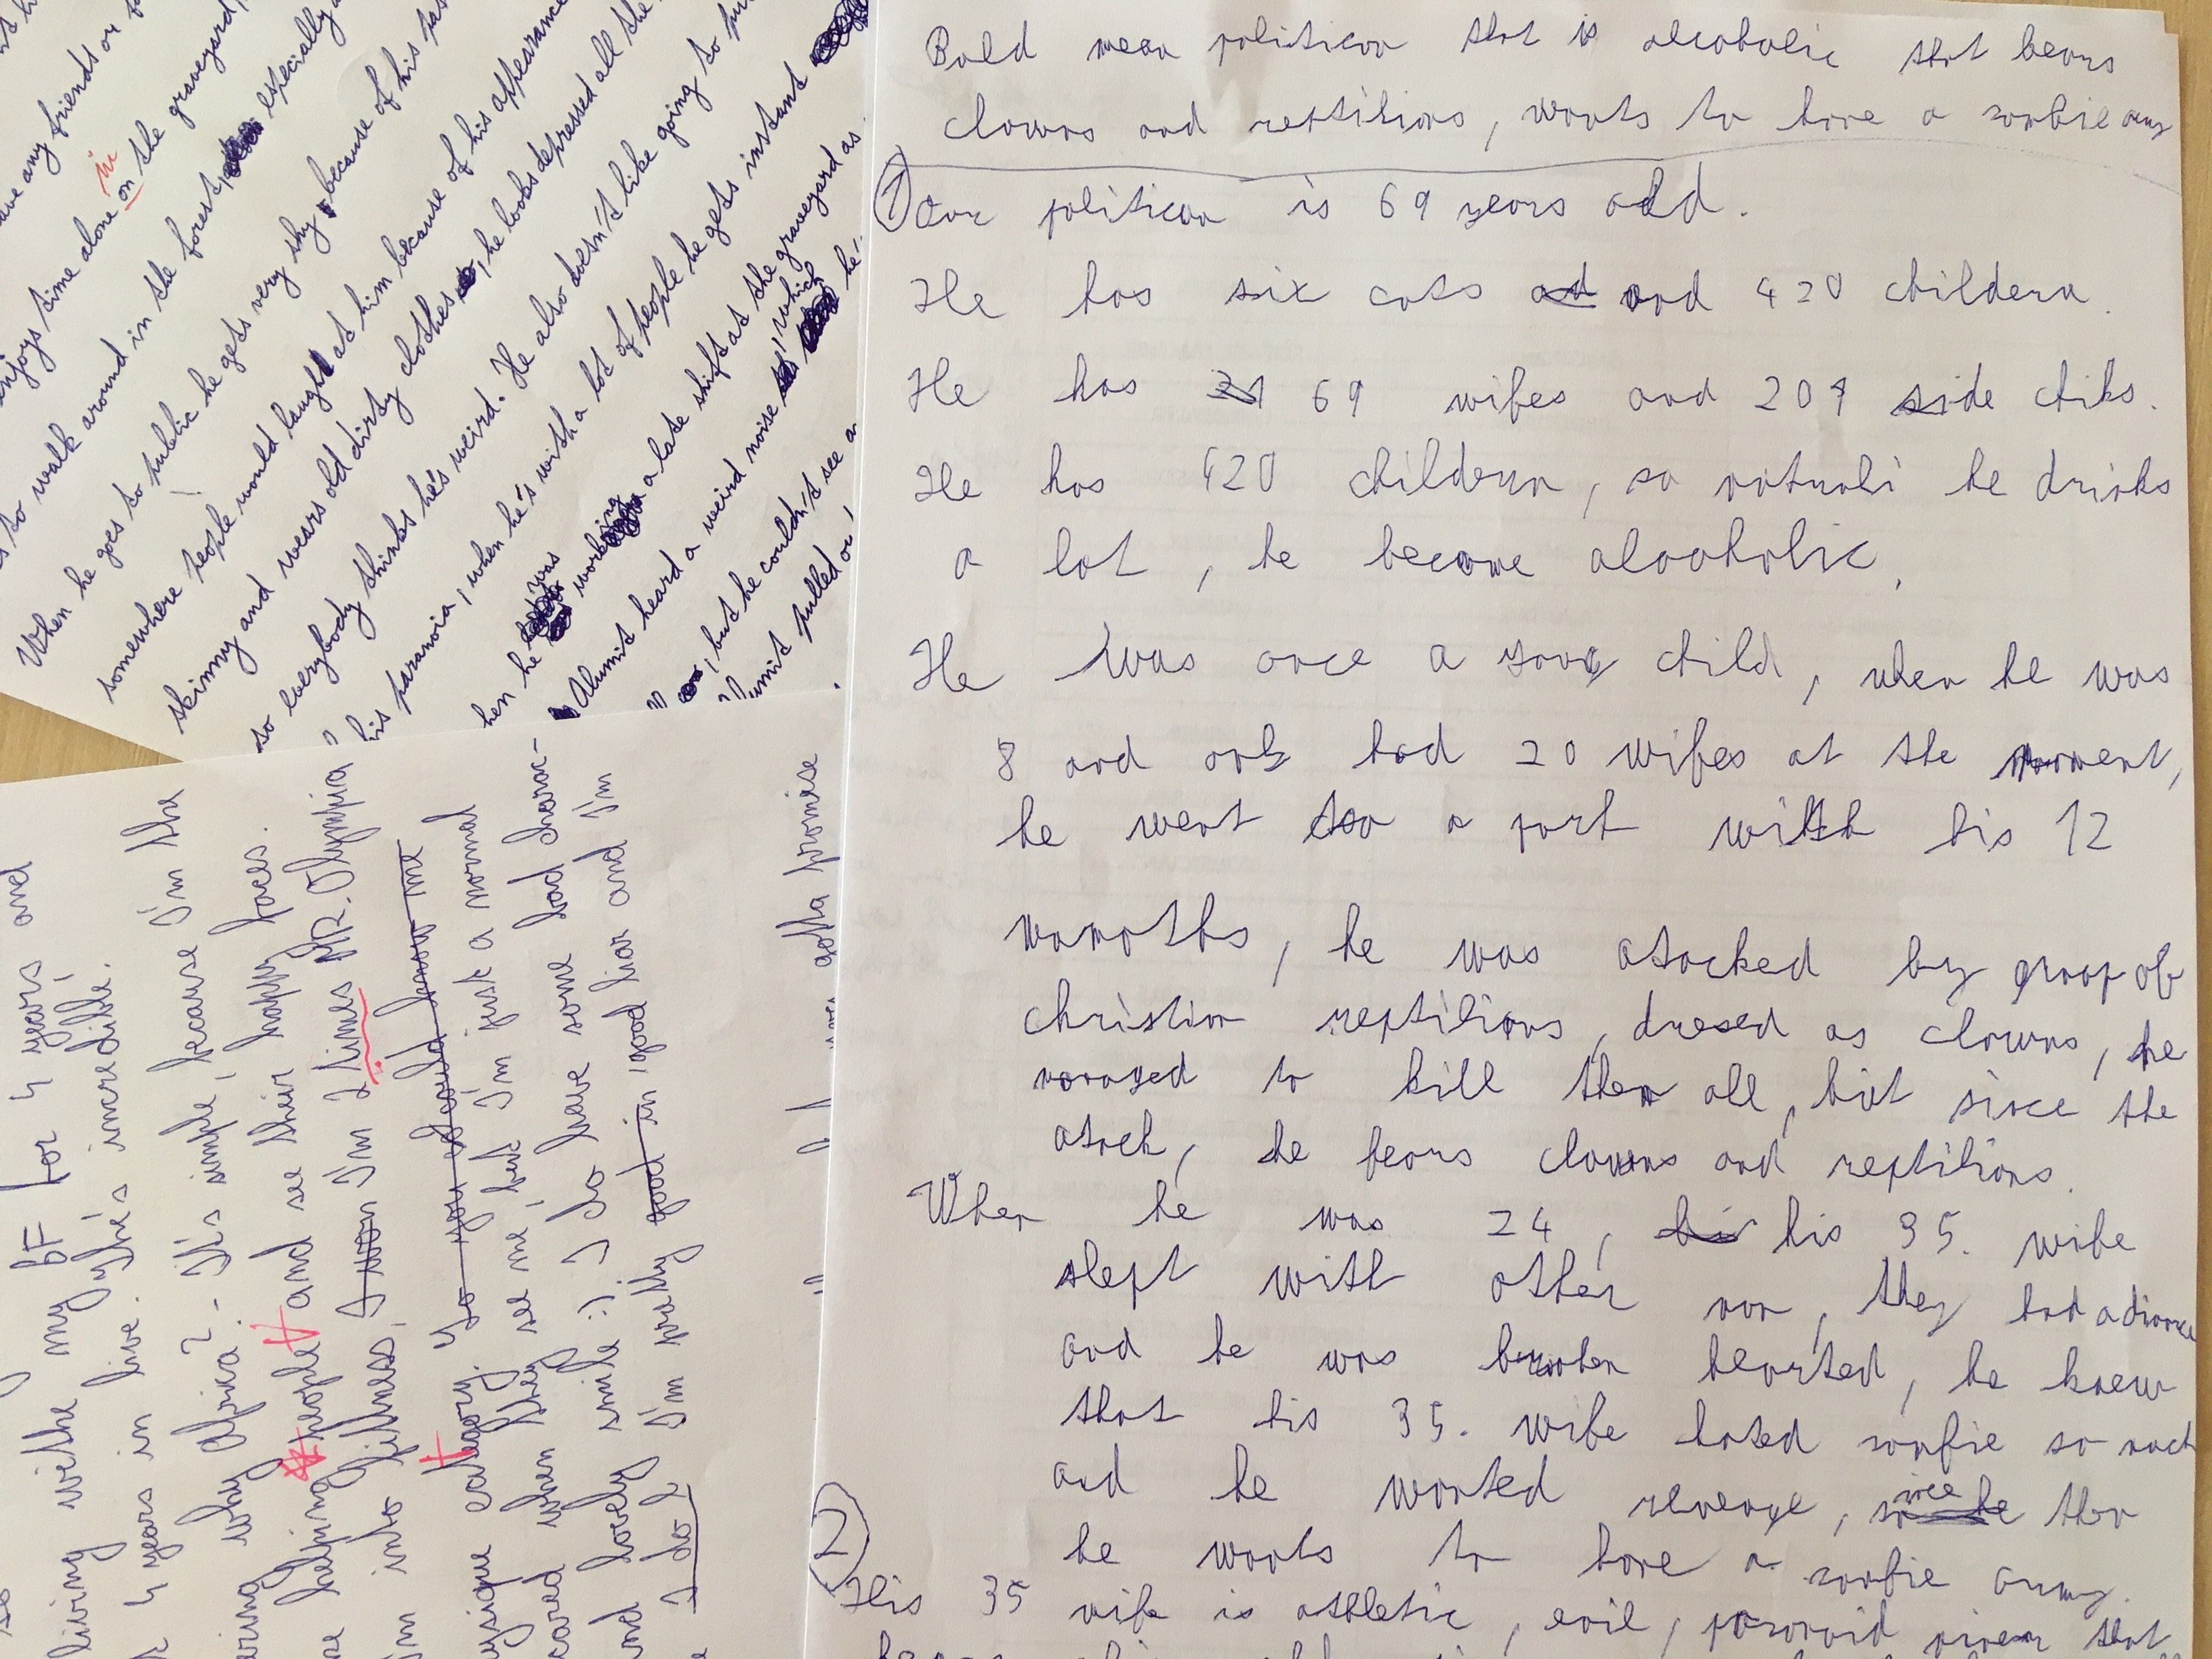 Bald mean politican that is alcoholic that bears
clowns and reptilians, wants to have a zombie army
① Our politican is 69 years old.
He has six cats ad and 420 childern.
He has 21 69 wifes and 209 side chiks.
He has 420 childern, so naturali he drinks
a lot, he became alcoholic.
He was once a young child, when he was
8 and only had 20 wifes at the moment,
he went to a park with his 12
he was atacked by group of
christian reptilians, dresed as clowns, he
managed to kill them all, but since the
atack, he fears clowns and reptilians.
When he was 24, his his 35. wife
slept with other man, they had a divorce
and he was broken hearted, he knew
that his 35. wife hated zombie so much
and he wanted revenge, since then
he wants to have a zombie army.
②
His 35 wife is athletic, evil, paranoid that
ave any friends or
enjoys time alone on in the graveyard,
to walk around in the forest, especially
When he goes to public he gets very shy, because of his
somewhere people would laught at him because of his appearance
skinny and wears old dirty clothes, he looks depressed all the
so everybody thinks he's weird. He also doesn't like going to
his paranoia, when he's with a lot of people he gets instant
hen he was working a late shift at the graveyard as
Alumit heard a weird noise, which he
, but he couldn't see
umit pulled ou
living withe my bf for 4 years and
4 years in live. This incredible.
why Africa?. It's simple, because I'm the
helping people and see their happy faces.
I'm into fitness, I won I'm 2 times MR. Olympia
category. Yo you should know me
when they see me, but I'm just a normal
and lovely smile :) I do have some bad
I'm really good in good liar and I'm
I do 2
gotta promise